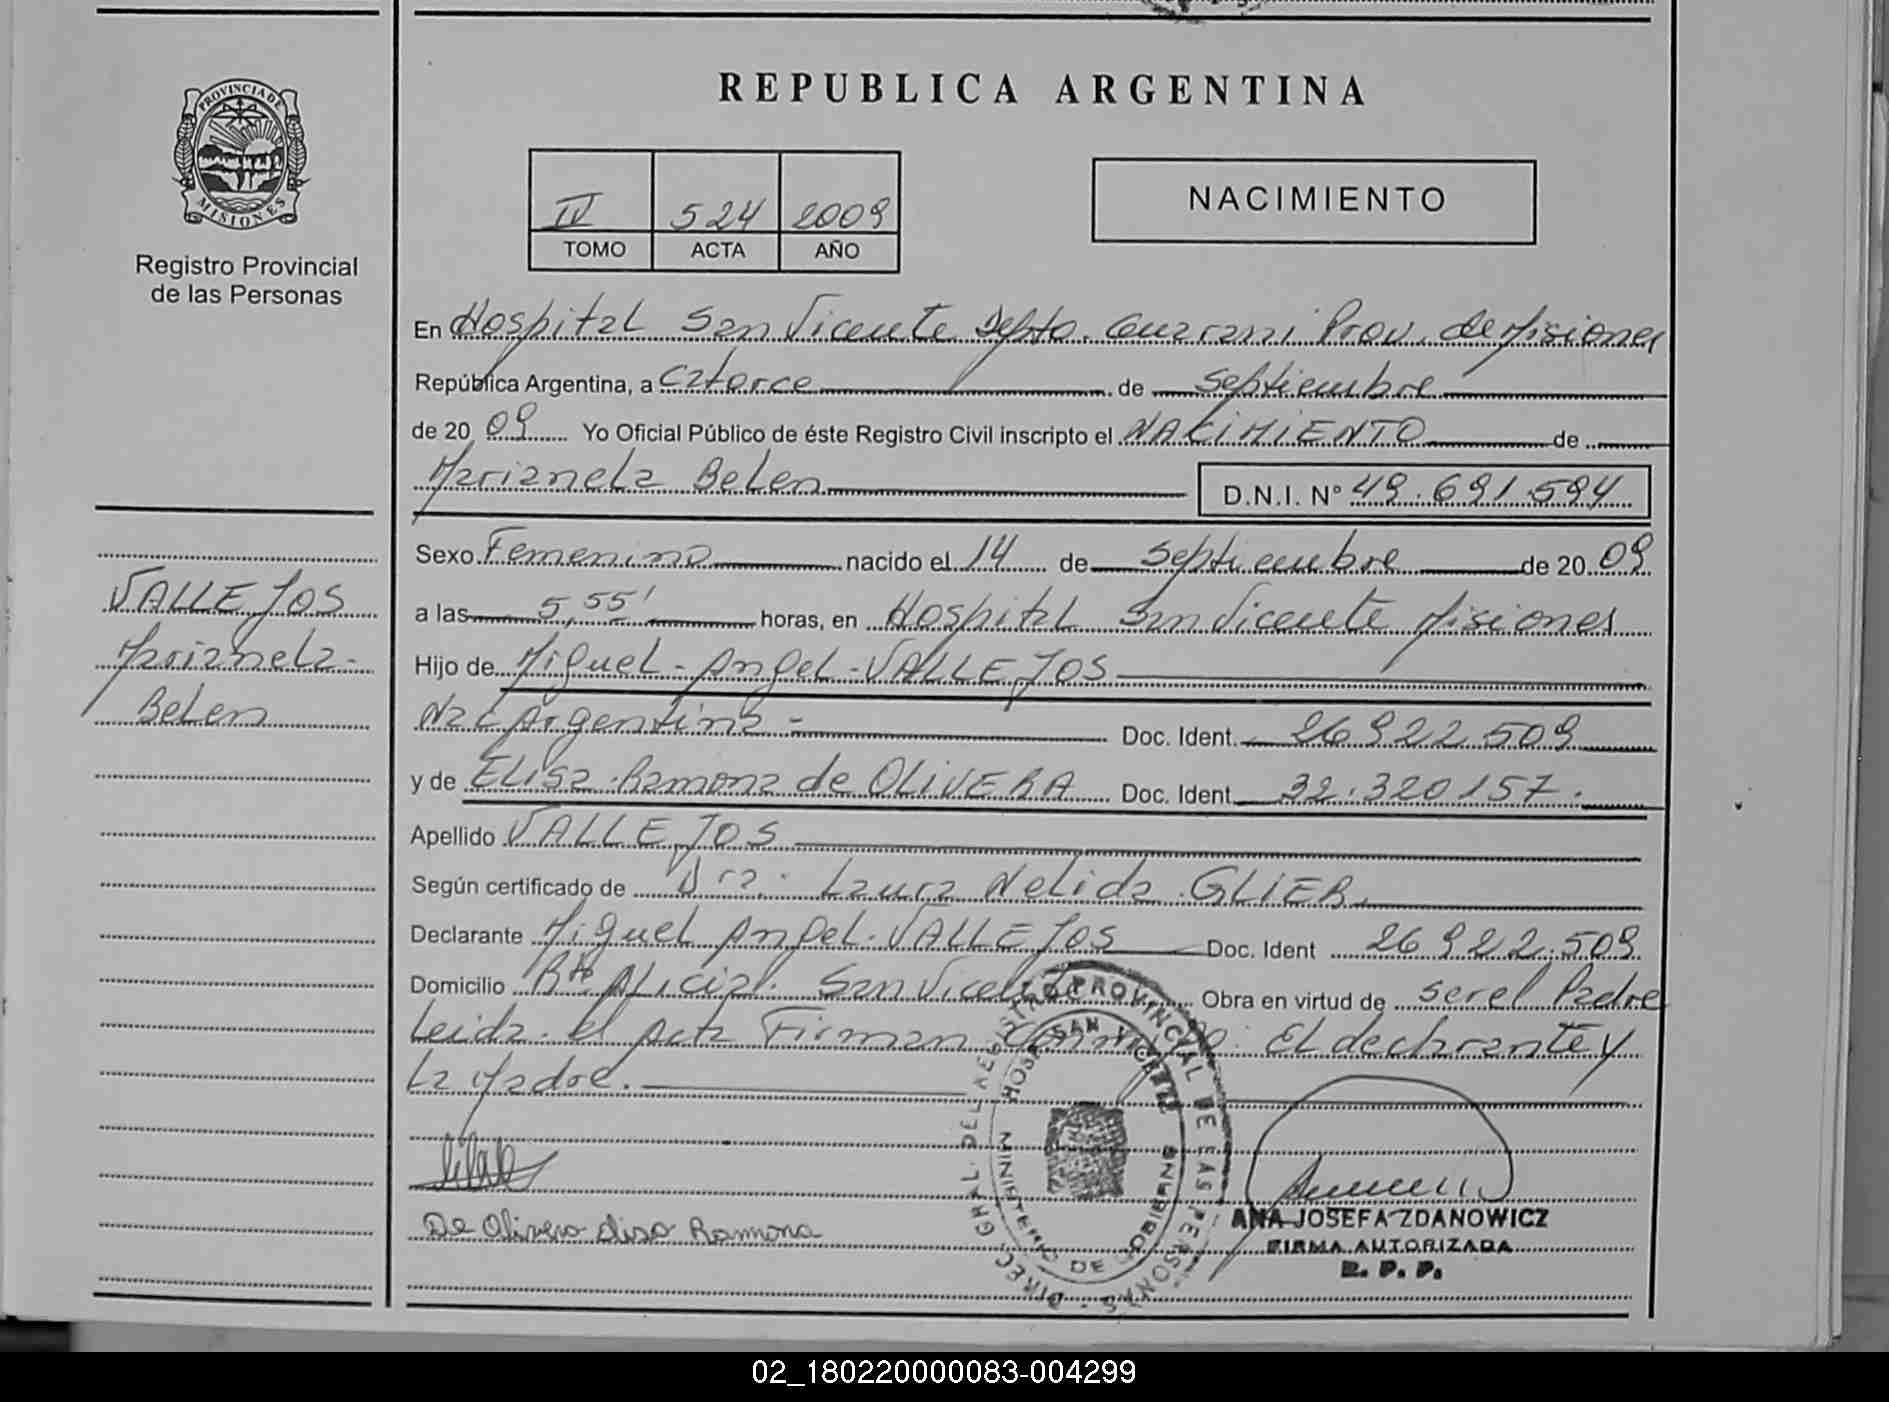 REPUBLICA ARGENTINA
PROVINCIA DE
MISIONES
Registro Provincial
de las Personas
IV 524 2009
TOMO ACTA AÑO
NACIMIENTO
En Hospital San Vicente Depto. Guarani Prov. de Misiones
República Argentina, a Catorce de Septiembre
de 2009 Yo Oficial Público de éste Registro Civil inscripto el NACIMIENTO de
Marianela Belen D.N.I. Nº 49.691.594
Sexo Femenino nacido el 14 de Septiembre de 2009
a las 5,55' horas, en Hospital San Vicente Misiones
Hijo de Miguel - Angel - VALLEJOS
Nac Argentina - Doc. Ident. 26922509
y de Elisa Ramona de OLIVERA Doc. Ident. 32.320157.
Apellido VALLEJOS
Según certificado de Dra. Laura Nelida GLIER
Declarante Miguel Angel VALLEJOS Doc. Ident 26922.509
Domicilio Bº San Vicente Obra en virtud de ser el Padre
Leida el Acta Firman : El declarante y
La Madre.
VALLEJOS
Marianela -
Belen
De Olivera Elisa Ramona
DIREC GRAL DEL REGISTRO PROVINCIAL DE LAS PERSONAS
HOSP SAN VICENTE
MINISTERIO DE GOBIERNO
ANA JOSEFA ZDANOWICZ
FIRMA AUTORIZADA
R. P. P.
02_180220000083-004299